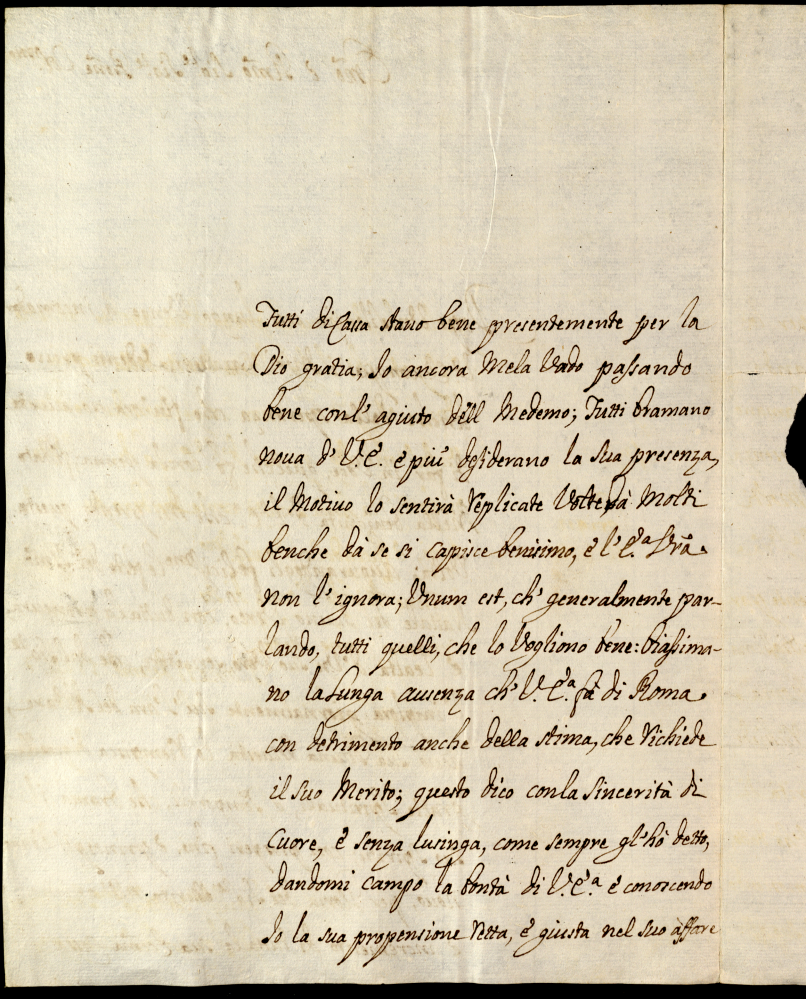 Tutti di Casa stano bene presentemente per la
Dio gratia; Io ancora Mela Vado passando
bene conl' agiuto dell Medemo; Tutti bramano
nova d' V.E. e più desiderano la sua presenza,
il Motivo lo sentirà replicate Volte dà Molti
benche dà se si capisce benissimo, e l' E.a Vrã
non l' ignora; Unum est, ch' generalmente par-
lando, tutti quelli, che lo Vogliono bene: biassima-
no la Lunga ausenza ch' V. E.a fa di Roma
con detrimento anche della stima, che richiede
il suo Merito; questo dico conla sincerità di
Cuore, e senza lusinga, come sempre gl' hò detto,
dandomi campo la bontà di V.E.a e conoscendo
Io la sua propensione retta, e giusta nel suo affare